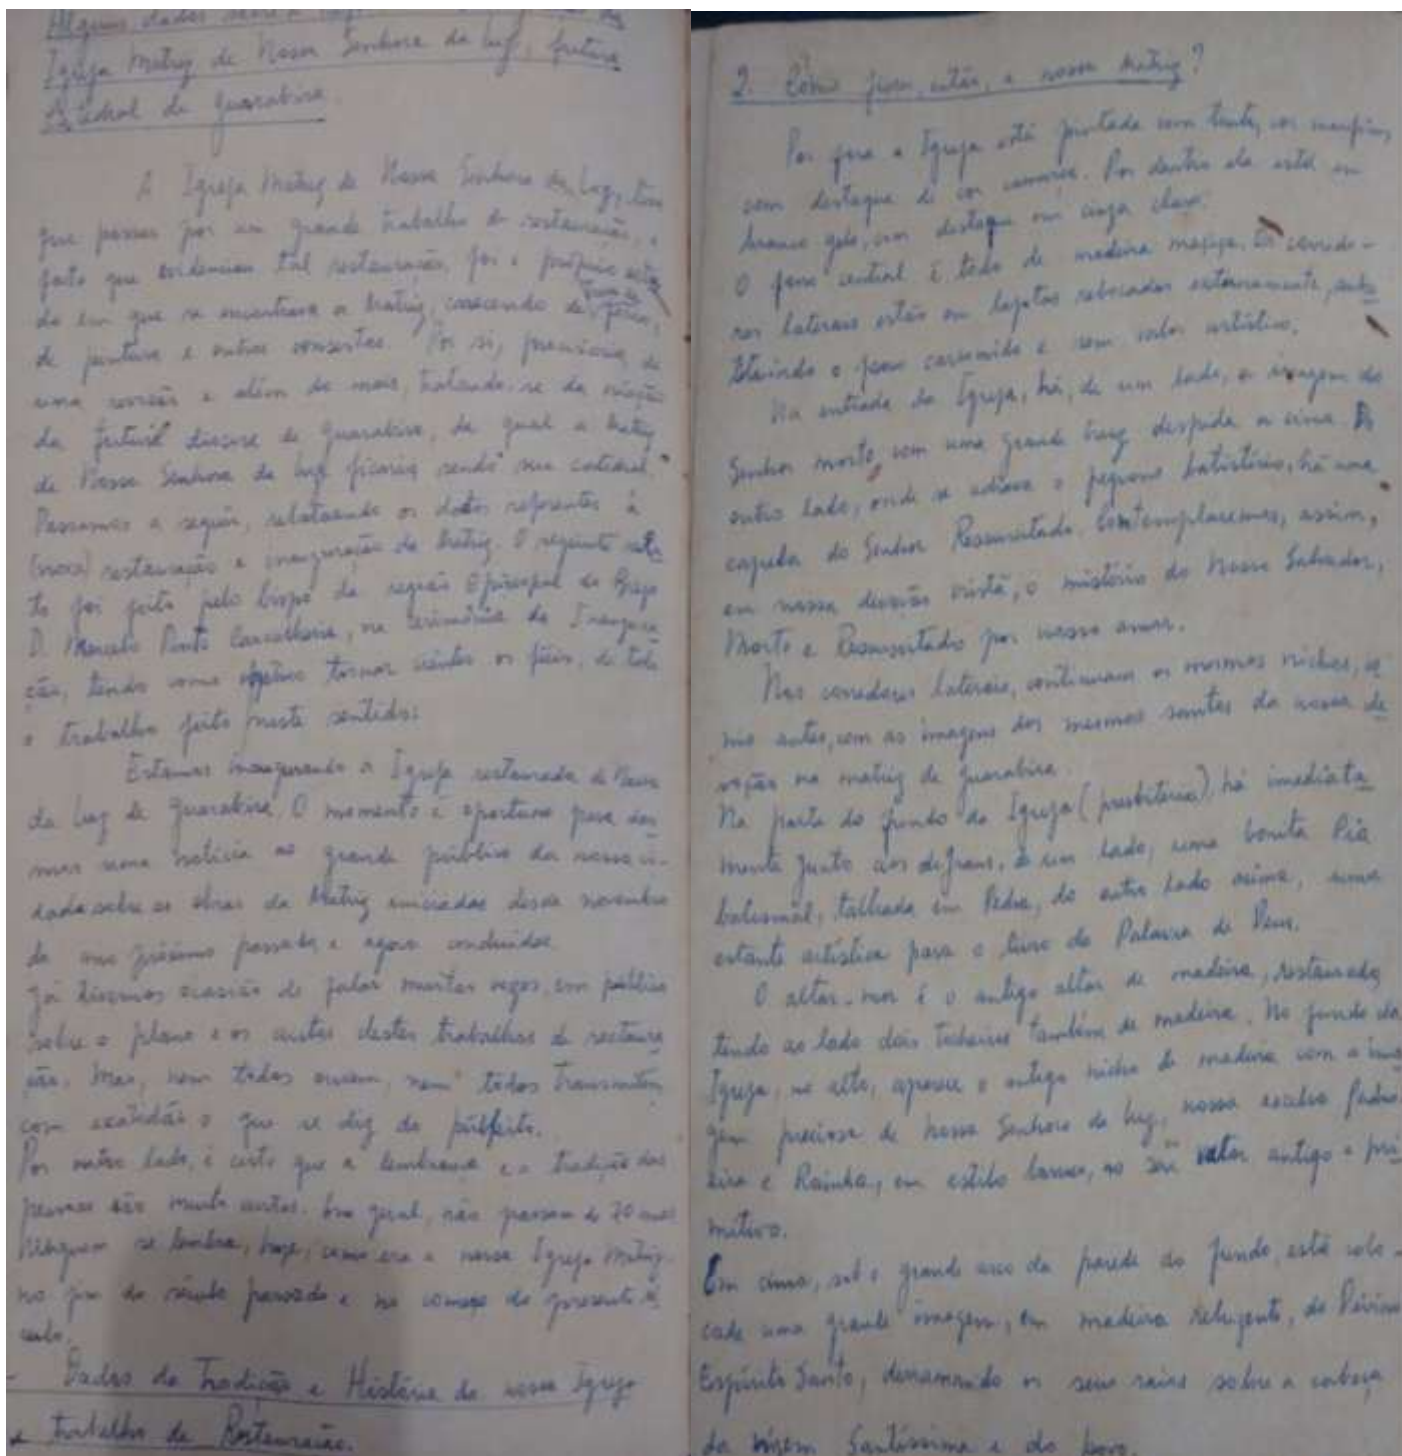 Alguns dados sobre a
Igreja Matriz de Nossa Senhora da Luz, futura
Catedral de Guarabira.
A Igreja Matriz de Nossa Senhora da Luz, teve
que passar por um grande trabalho de restauração, o
fato que evidenciou tal restauração, foi o próprio esta
do em que se encontrava a Matriz, carecendo de
de pintura e outros consertos. Por si, precisava de
uma revisão e além do mais, tratando-se da criação
da futura diocese de Guarabira, da qual a Matriz
de Nossa Senhora da Luz ficaria sendo sua catedral.
Passamos a seguir, relatando os dados referentes à
(nova) restauração e inauguração da Matriz. O seguinte rela
to foi feito pelo bispo da região Episcopal do Brejo
D. Marcelo Pinto Carvalheira, na cerimônia de Inaugura
ção, tendo como objetivo tornar cientes os fiéis, de todo
o trabalho feito neste sentido:
Estamos inaugurando a Igreja restaurada de Nossa
da Luz de Guarabira. O momento é oportuno para dar
mos uma notícia ao grande público da nossa ci-
dade sobre as obras da Matriz iniciadas desde novembro
do ano próximo passado e agora concluídas.
Já tivemos ocasião de falar muitas vezes, em público
sobre o plano e os custos destes trabalhos de restaura
ção. Mas, nem todos ouvem, nem todos transmitem
com exatidão o que se diz do
Por outro lado, é certo que a lembrança e a tradição das
pessoas são muito curtas. Em geral, não passam de 70 anos
Ninguém se lembra, hoje, como era a nossa Igreja Matriz
no fim do século passado e no começo do presente sé
culo.
- Dados da Tradição e História da nossa Igreja
e trabalho de Restauração.
2. Como ficou, então, a nossa Matriz?
Por fora a Igreja está pintada com tinta, cor marfim,
com destaque de cor camurça. Por dentro ela está em
branco gelo, com destaque em cinza claro.
O forro central é todo de madeira maciça. Os corredo-
res laterais estão em lajotas rebocadas externamente, subs
tituindo o forro carcomido e sem valor artístico.
Na entrada da Igreja, há, de um lado, a imagem do
Senhor morto, com uma grande Cruz despida a cima. Do
outro lado, onde se achava o pequeno batistério, há uma
capela do Senhor Ressuscitado. Contemplaremos, assim,
em nossa devoção cristã, o mistério do Nosso Salvador,
Morto e Ressuscitado por nosso amor.
Nos corredores laterais, continuam os mesmos nichos, co
mo antes, com as imagens dos mesmos santos da nossa de
voção na matriz de Guarabira.
Na parte do fundo da Igreja (presbitério), há imediata
mente junto aos degraus, de um lado, uma bonita Pia
batismal, talhada em Pedra, do outro lado acima, uma
estante artística para o livro da Palavra de Deus.
O altar-mor é o antigo altar de madeira, restaurado,
tendo ao lado dois tocheiros também de madeira. No fundo da
Igreja, no alto, aparece o antigo nicho de madeira com a ima
gem preciosa de Nossa Senhora da Luz, nossa excelsa Padro
eira e Rainha, em estilo barroco, no seu valor antigo e pri
mitivo.
Em cima, sob o grande arco da parede do fundo, está colo-
cada uma grande imagem, em madeira refugente, do Divino
Espírito Santo, derramando os seus raios sobre a cabeça
da Virgem Santíssima e do povo.